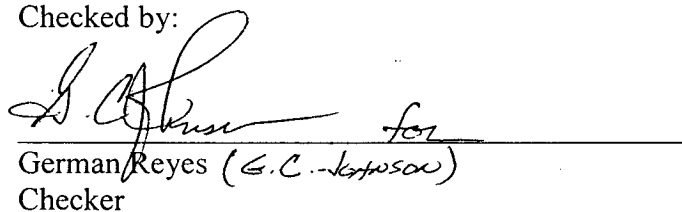 Checked by:
G. C. Johnson for
German Reyes (G.C. JOHNSON)
Checker